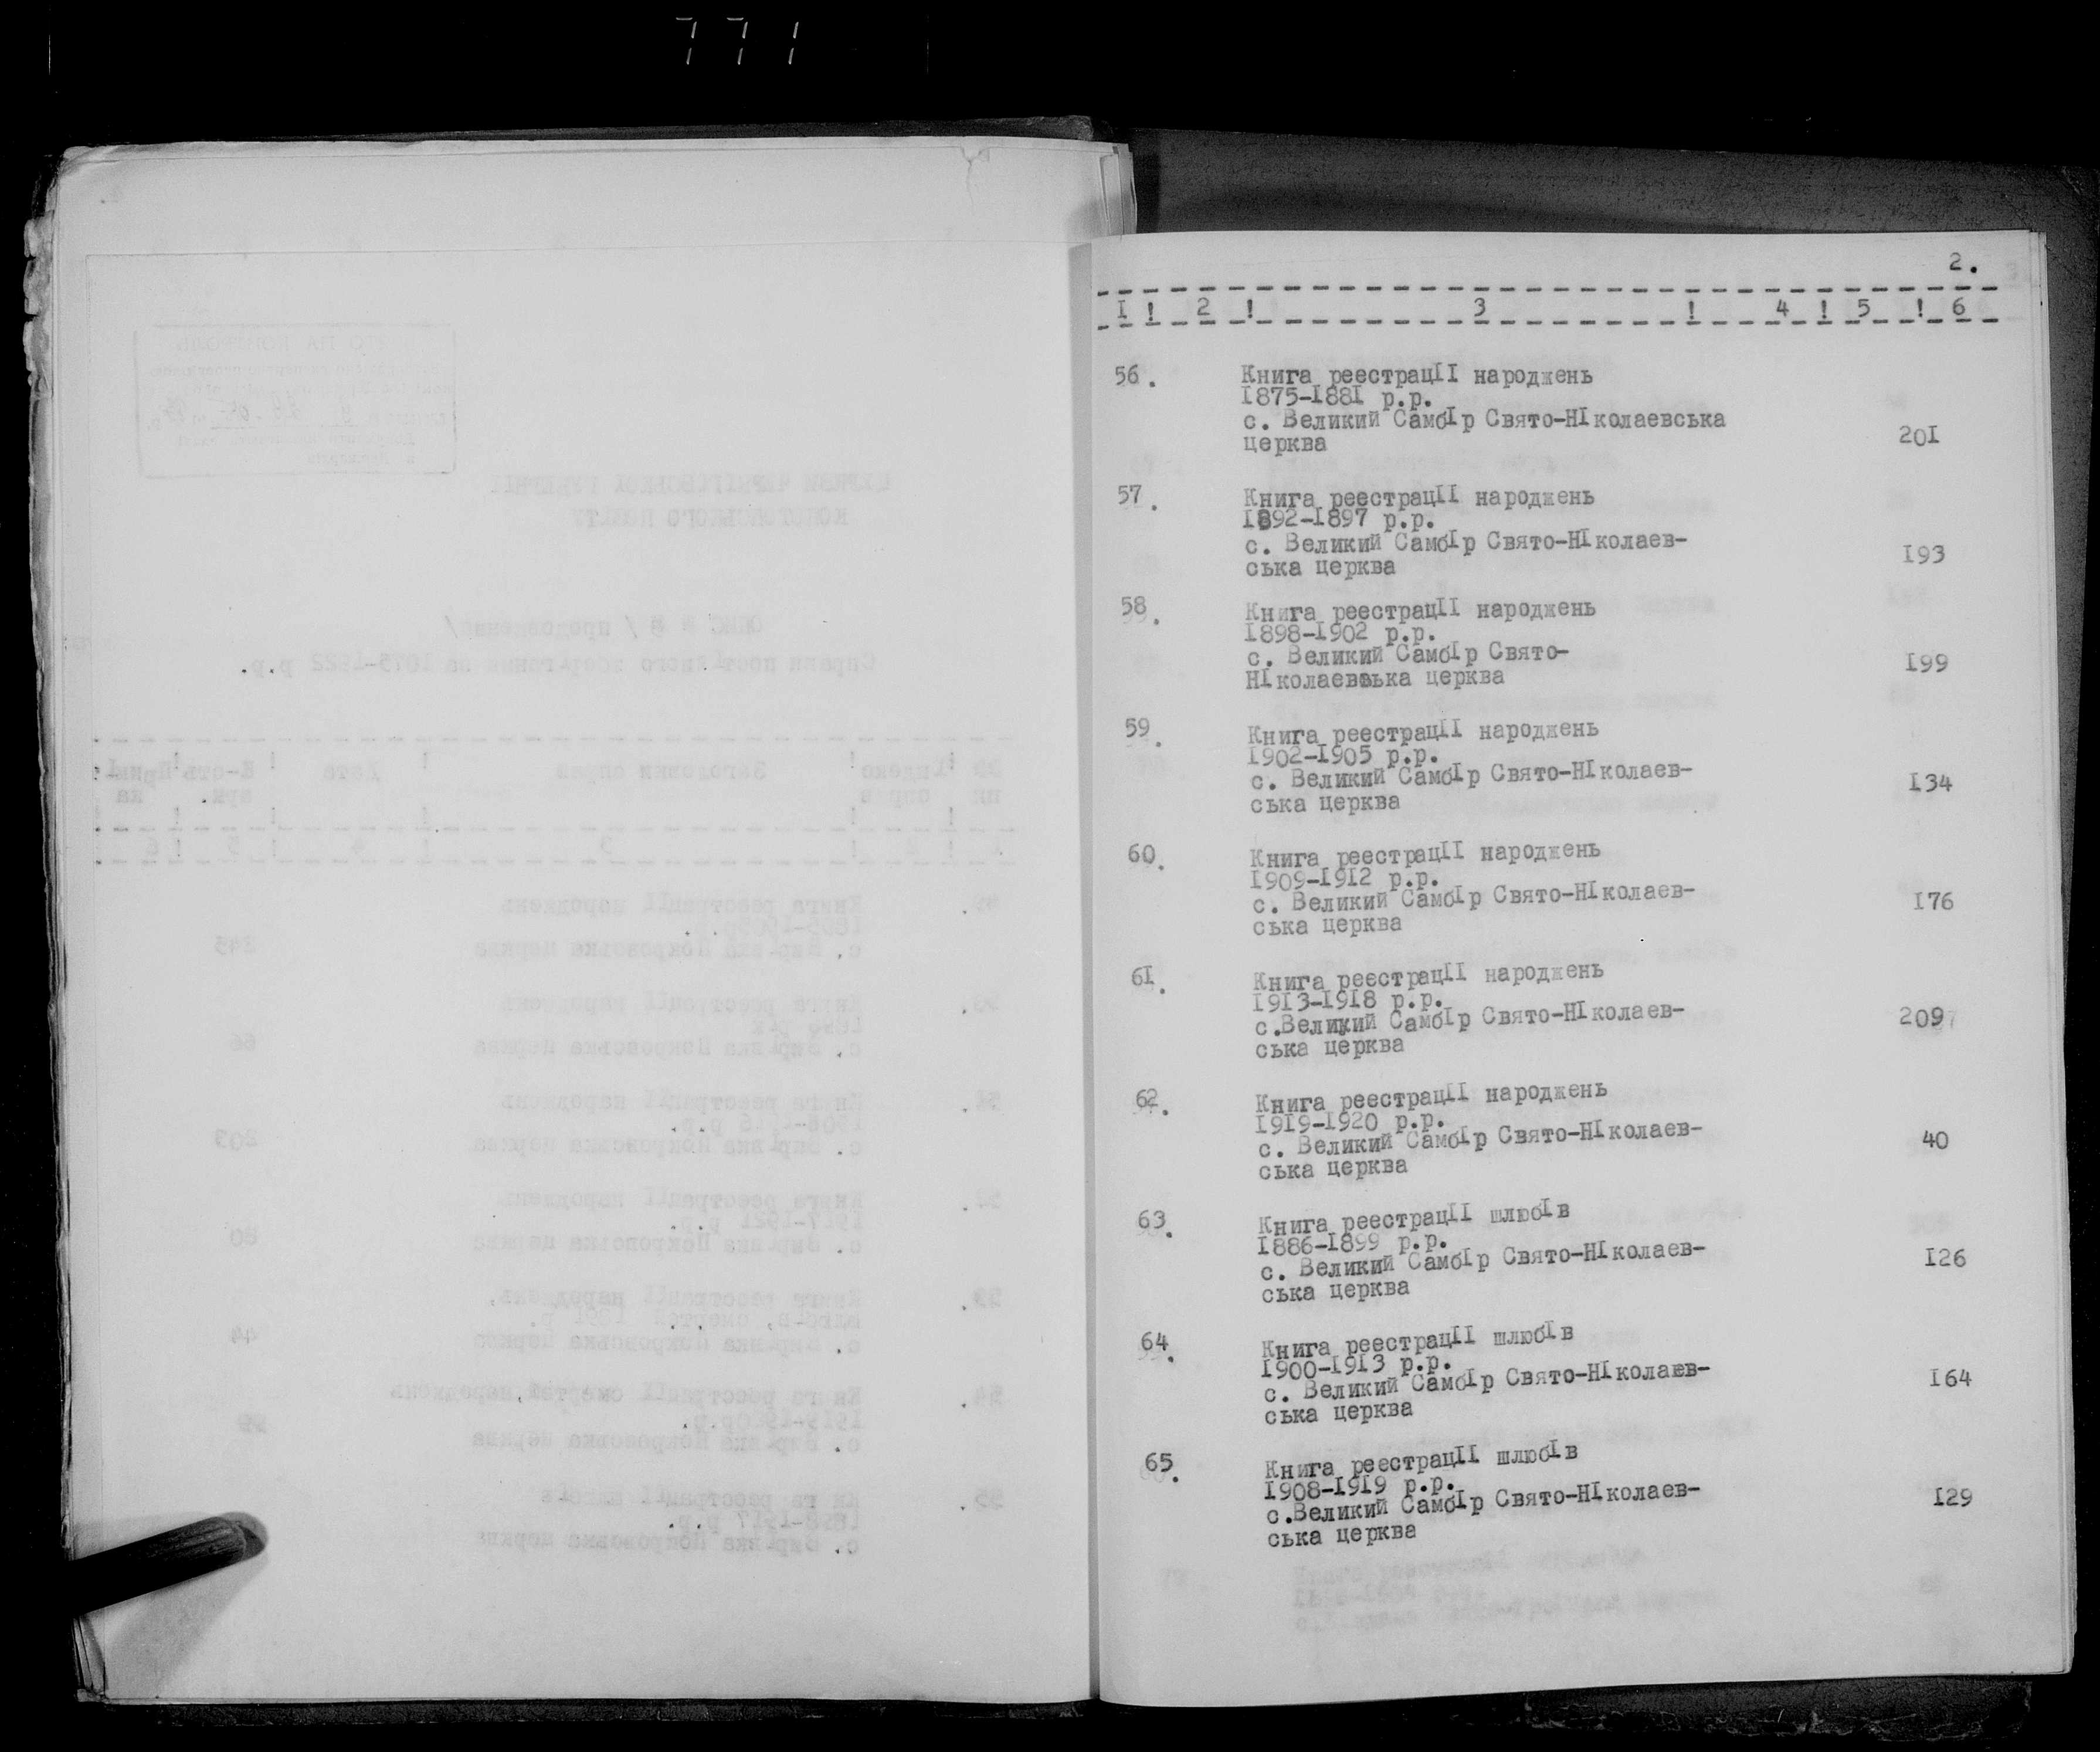 771
2.
I ! 2 ! 3 ! 4 ! 5 ! 6
56. Книга реестрацІІ народжень
I875-I88I р.р.
с. Великий СамбІр Свято-НІколаевська
церква 20I
57. Книга реестрацІІ народжень
I892-I897 р.р.
с. Великий СамбІр Свято-НІколаев-
ська церква I93
58. Книга реестрацІІ народжень
I898-I902 р.р.
с. Великий СамбІр Свято-
НІколаевська церква I99
59. Книга реестрацІІ народжень
I902-I905 р.р.
с. Великий СамбІр Свято-НІколаев-
ська церква I34
60. Книга реестрацІІ народжень
I909-I9I2 р.р.
с. Великий СамбІр Свято-НІколаев-
ська церква I76
6I. Книга реестрацІІ народжень
I9I3-I9I8 р.р.
с.Великий СамбІр Свято-НІколаев-
ська церква 209
62. Книга реестрацІІ народжень
I9I9-I920 р.р.
с. Великий СамбІр Свято-НІколаев-
ська церква 40
63. Книга реестрацІІ шлюбІв
I886-I899 р.р.
с. Великий СамбІр Свято-НІколаев-
ська церква I26
64. Книга реестрацІІ шлюбІв
I900-I9I3 р.р.
с. Великий СамбІр Свято-НІколаев-
ська церква I64
65. Книга реестрацІІ шлюбІв
I908-I9I9 р.р.
с.Великий СамбІр Свято-НІколаев-
ська церква I29